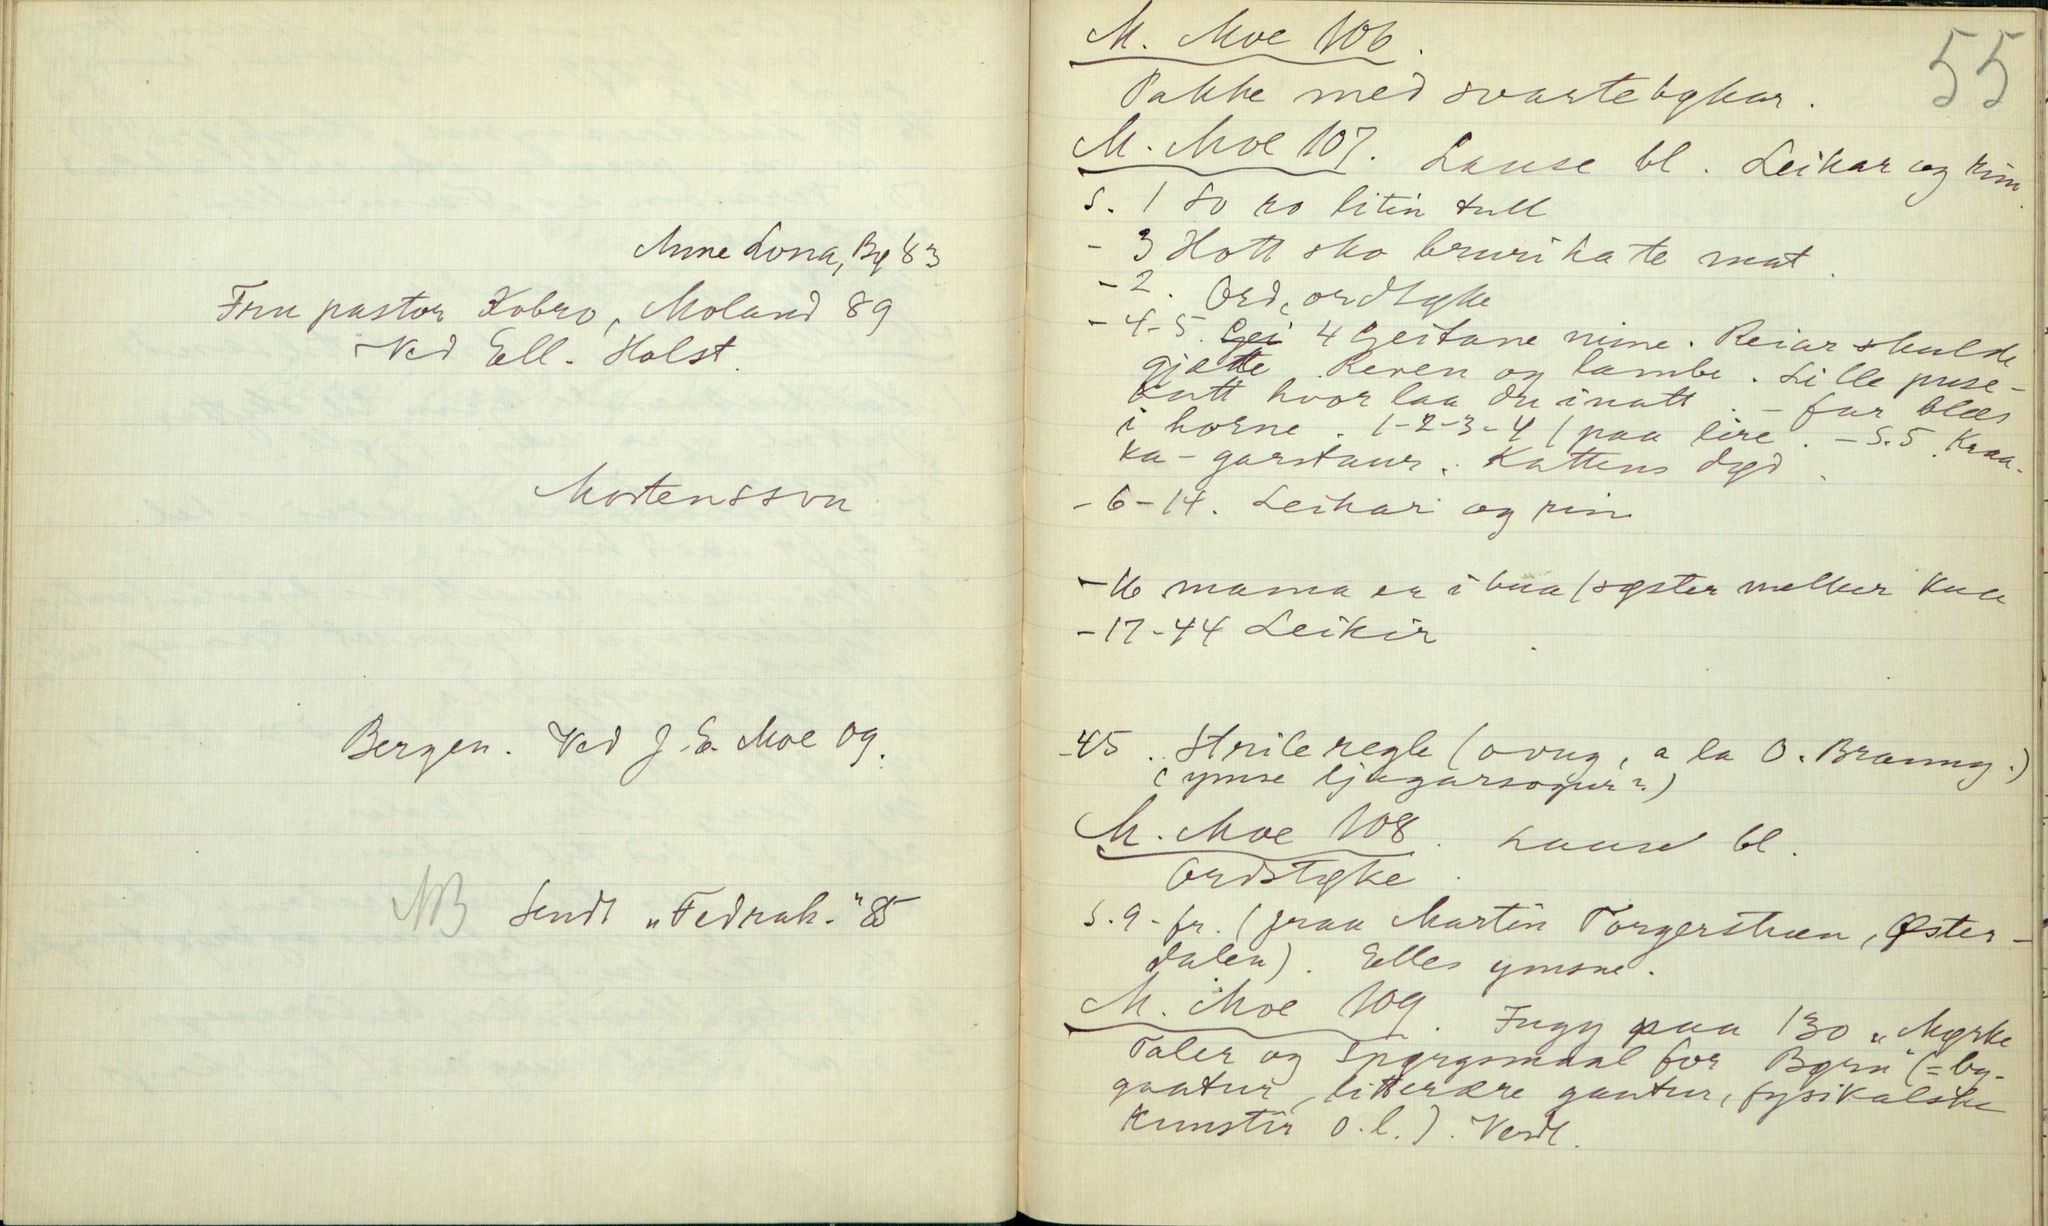 Anne Lona, Bø 83
Fru pastor Kobro, Moland 89
Ved Ell. Holst
Mortensson
Bergen. Ved J. E. Moe 09.
NB Sendt „Fedrah." 85
55
M. Moe 106.
Pakke med svartebøkar.
M. Moe 107. Lause bl. Leikar og rim.
S. 1 So ro litin tull
- 3 Hott sko bruri ha te mat.
- 2. Ord, ordtøke
- 4-5. Gei 4 Geitane mine. Reiar skulde
gjætte. Reven og lambe. Lille puse-
katt hvor laa du i natt. - far blæs
i horne. 1-2-3-4 / paa lire. - S. 5. Kraa-
ka - garstaur. Kattens død.
- 6-14. Leikar og rim
- 16 mama er i bua / søster melker kua
- 17-44 Leikir.
- 45. Strileregle (ovug, a la O. Bræmng.)
(ymse ljugarsogur?)
M. Moe 108. Lause bl.
Ordstøke.
S. 9 - fr. (fraa Martin Torgerstuen, Øster-
dalen). Elles ymsne.
M. Moe 109. Inngj paa 130 „Mørke
Taler og Spørgsmaal for Børn" (= by-
gaatur, litterære gaatur, fysikalske
kunstir o.l.). Verdl.